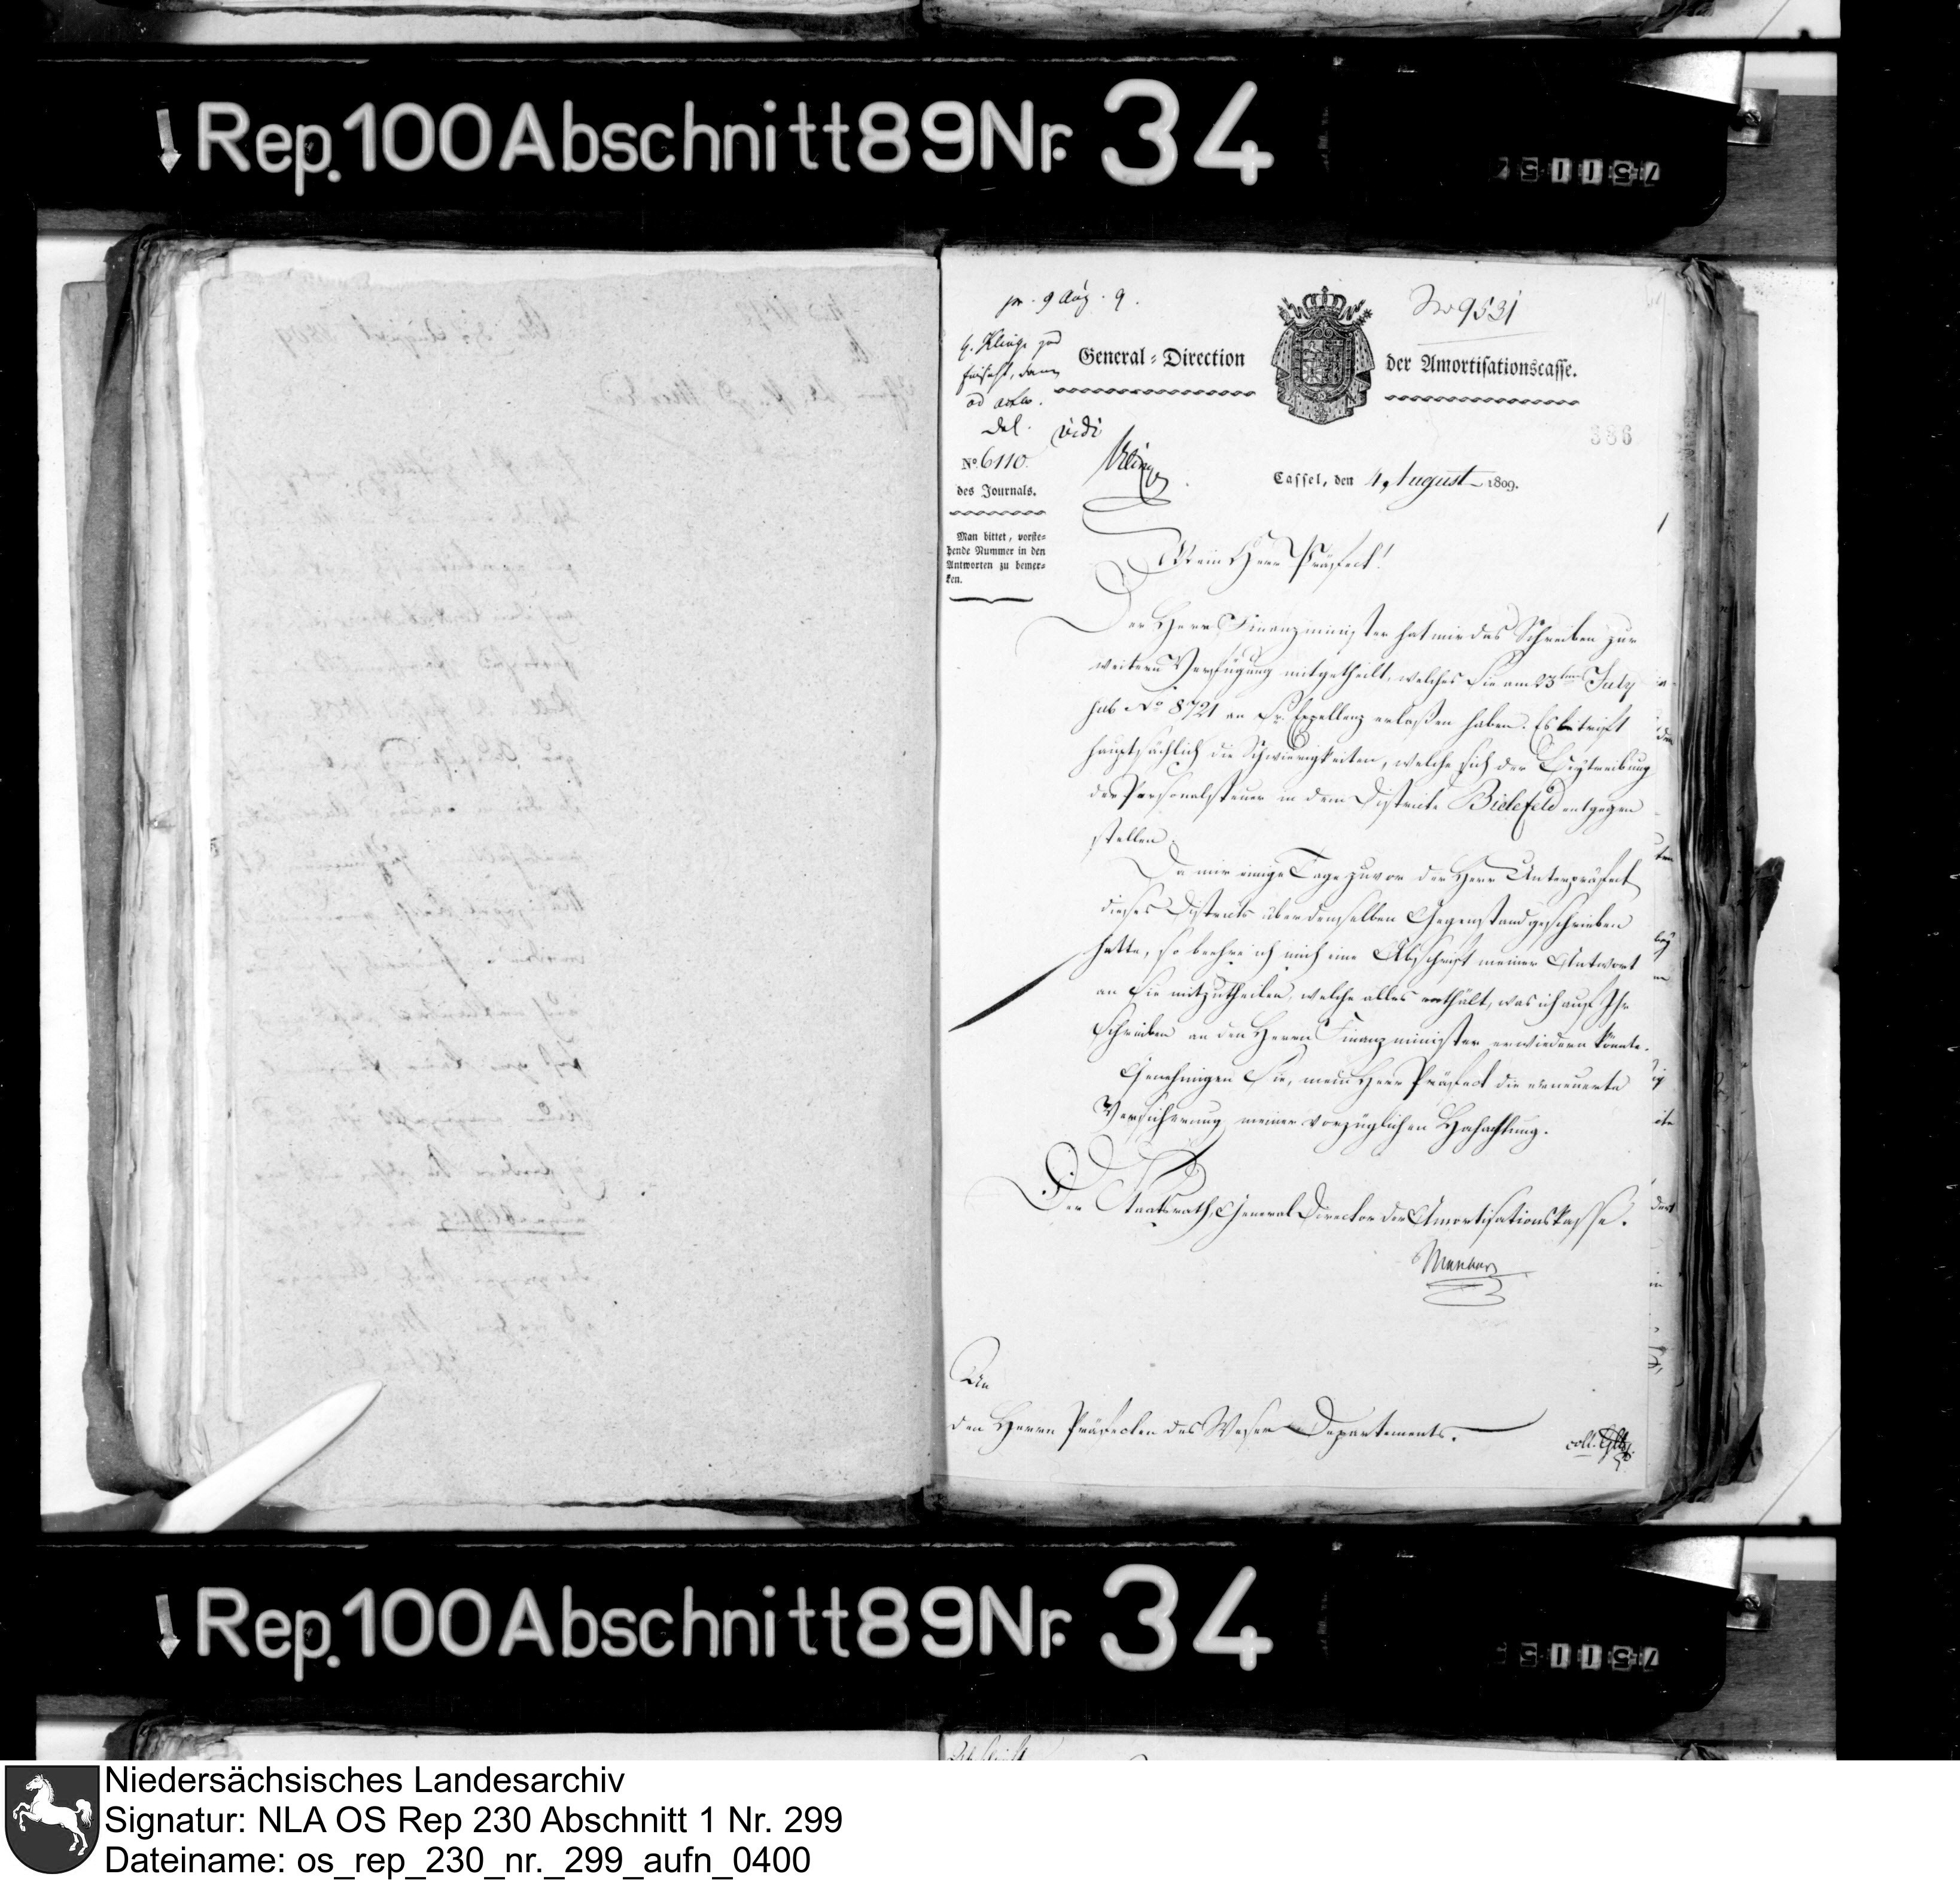 Rep. 100 Abschnitt 89 Nr. 34
pr. 9 Aug. 9.
No 9531
H. Klinge zur
Einsicht, dann
ad acta.
Del.
vidi
Klinge
General-Direction der Amortisationscasse.
386
No. 6110.
des Journals.
Cassel, den 4. August 1809.
Man bittet, vorste-
hende Nummer in den
Antworten zu bemer-
ken.
Mein Herr Präfect!
Der Herr Finanzminister hat mir das Schreiben zur
weitern Verfügung mitgetheilt, welches Sie am 23ten July
sub No 8721 an Sr. Exzellenz erlaßen haben. Es betrift
hauptsächlich die Schwierigkeiten, welche sich der Beytreibung
der Personalsteuer in dem Districte Bielefeld entgegen
stellen.
Da mir einige Tage zuvor der Herr Unterpräfect
dieses Districts über denselben Gegenstand geschrieben
hatte, so beehre ich mich eine Abschrift meiner Antwort
an Sie mitzutheilen, welche alles enthält, was ich auf Ihr
Schreiben an den Herrn Finanzminister erwiedern könnte.
Genehmigen Sie, mein Herr Präfect die erneuerte
Versicherung meiner vorzüglichen Hochachtung.
Der Staatsrath, General Director der Amortisationskasse.
An
den Herrn Präfecten des Weser Departements.
coll.
Rep. 100 Abschnitt 89 Nr. 34
Niedersächsisches Landesarchiv
Signatur: NLA OS Rep 230 Abschnitt 1 Nr. 299
Dateiname: os_rep_230_nr._299_aufn_0400